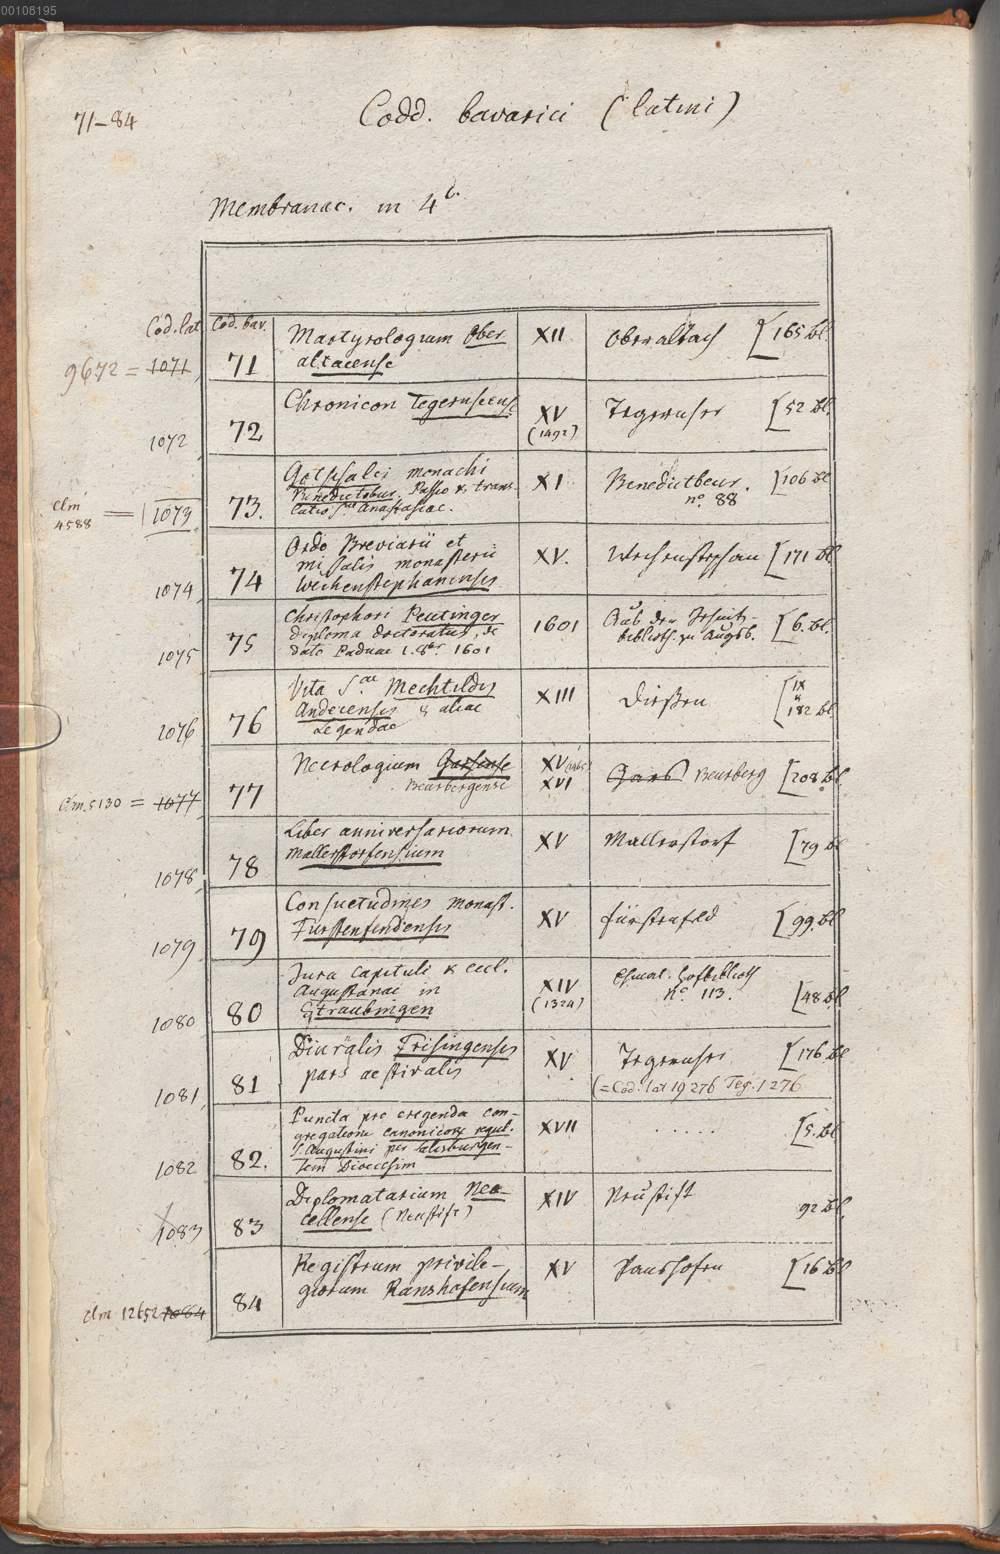 00108195
71-84
Codd. bavarici (latini)
Membranac. in 4to.
Cod. lat
Cod. bav.
9672 = 1071
71
Martyrologium Ober
altacense
XII
Oberaltach
[165 bl.
1072
72
Chronicon Tegernseense
XV
(1492)
Tegernsee
[52 bl.
Clm
4588 = 1073
73.
Gotschalci monachi
Benedictobur. Passio & trans-
latio Stae Anastasiae.
XI
Benedictbeur.
no. 88
[106 bl
1074
74
Ordo Breviarii et
missalis monasterii
Weihenstephanensis
XV.
Weihenstephan
[171 bl.
1075
75
Christophori Peutinger
diploma doctoratus, de
dato Paduae 1. 8br. 1601
1601
Aus der Jesuit-
biblioth. zu Augsb.
[6. bl.
1076
76
Vita S.ae Mechtildis
Andecensis & aliae
Legendae
XIII
Dießen
[IX
&
182 bl
Clm. 5130 = 1077
77
Necrologium Garsense
Beurbergense
XV
XVI
Gars Beurberg
[208. bl.
1078
78
Liber anniversariorum
Mallerstorfensium
XV
Mallerstorf
[79 bl
1079
79
Consuetudines monast.
Fürstenfeldensis
XV
Fürstenfeld
[99. bl
1080
80
Jura capituli & eccl.
Augustanae in
Straubingen
XIV
(1324)
Ehmal. Hofbiblioth
No. 113.
[48 bl
1081
81
Diurnalis Frisingensis
pars aestivalis
XV
Tegernsee
[176. bl
(= Cod. lat 19276 Teg. 1276
1082
82.
Puncta pro erigenda con-
gregatione canonicor regul.
S. Augustini per Salisburgen-
sem Dioecesim
XVII
. . . . .
[5. bl
1083
83
Diplomatarium Neo-
cellense (Neustift)
XIV
Neustift
92 bl.
Clm 12652 1084
84
Registrum privile-
giorum Ranshofensium
XV
Ranshofen
[16 bl